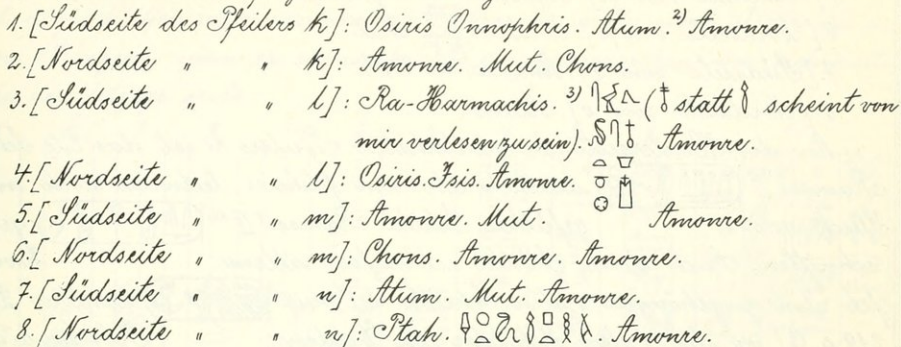 1. [Südseite des Pfeilers k]: Osiris Onnophris. Atum.²⁾ Amonre.
2. [Nordseite " " k]: Amonre. Mut. Chons.
3. [Südseite " " l]: Ra-Harmachis. ³⁾ ( statt scheint von
mir verlesen zu sein). Amonre.
4. [Nordseite " " l]: Osiris. Isis. Amonre.
5. [Südseite " " m]: Amonre. Mut. Amonre.
6. [Nordseite " " m]: Chons. Amonre. Amonre.
7. [Südseite " " n]: Atum. Mut. Amonre.
8. [Nordseite " " n]: Ptah. Amonre.